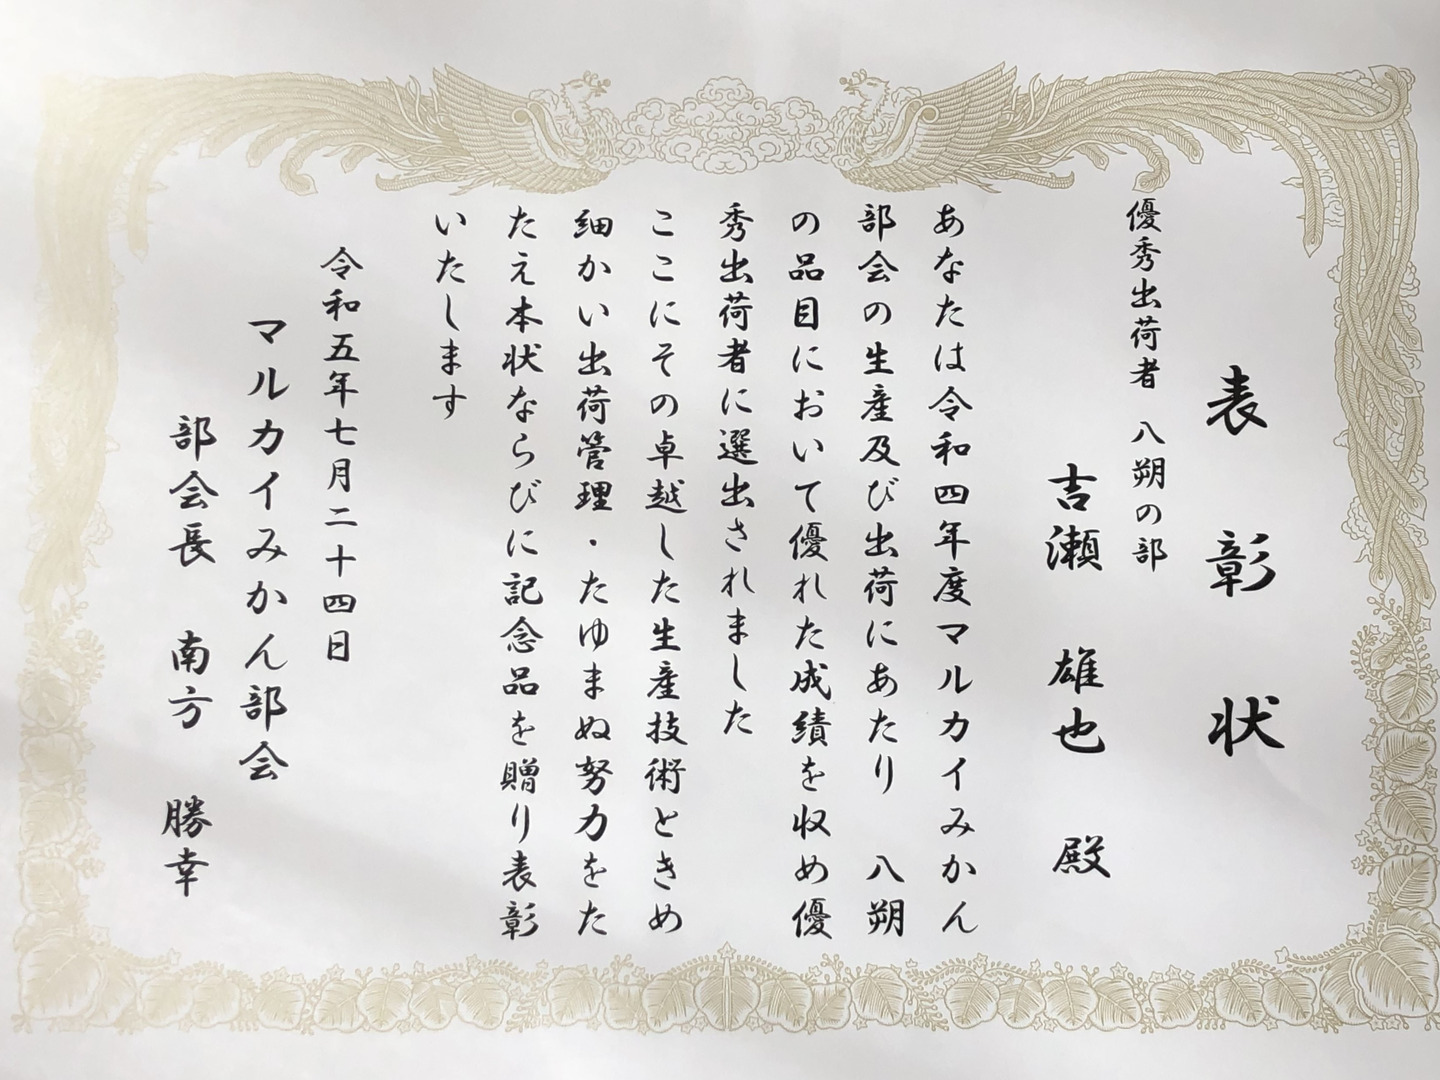 表彰状
優秀出荷者 八朔の部
吉瀬 雄也 殿
あなたは令和四年度マルカイみかん
部会の生産及び出荷にあたり 八朔
の品目において優れた成績を収め優
秀出荷者に選出されました
ここにその卓越した生産技術ときめ
細かい出荷管理・たゆまぬ努力をた
たえ本状ならびに記念品を贈り表彰
いたします
令和五年七月二十四日
マルカイみかん部会
部会長 南方 勝幸